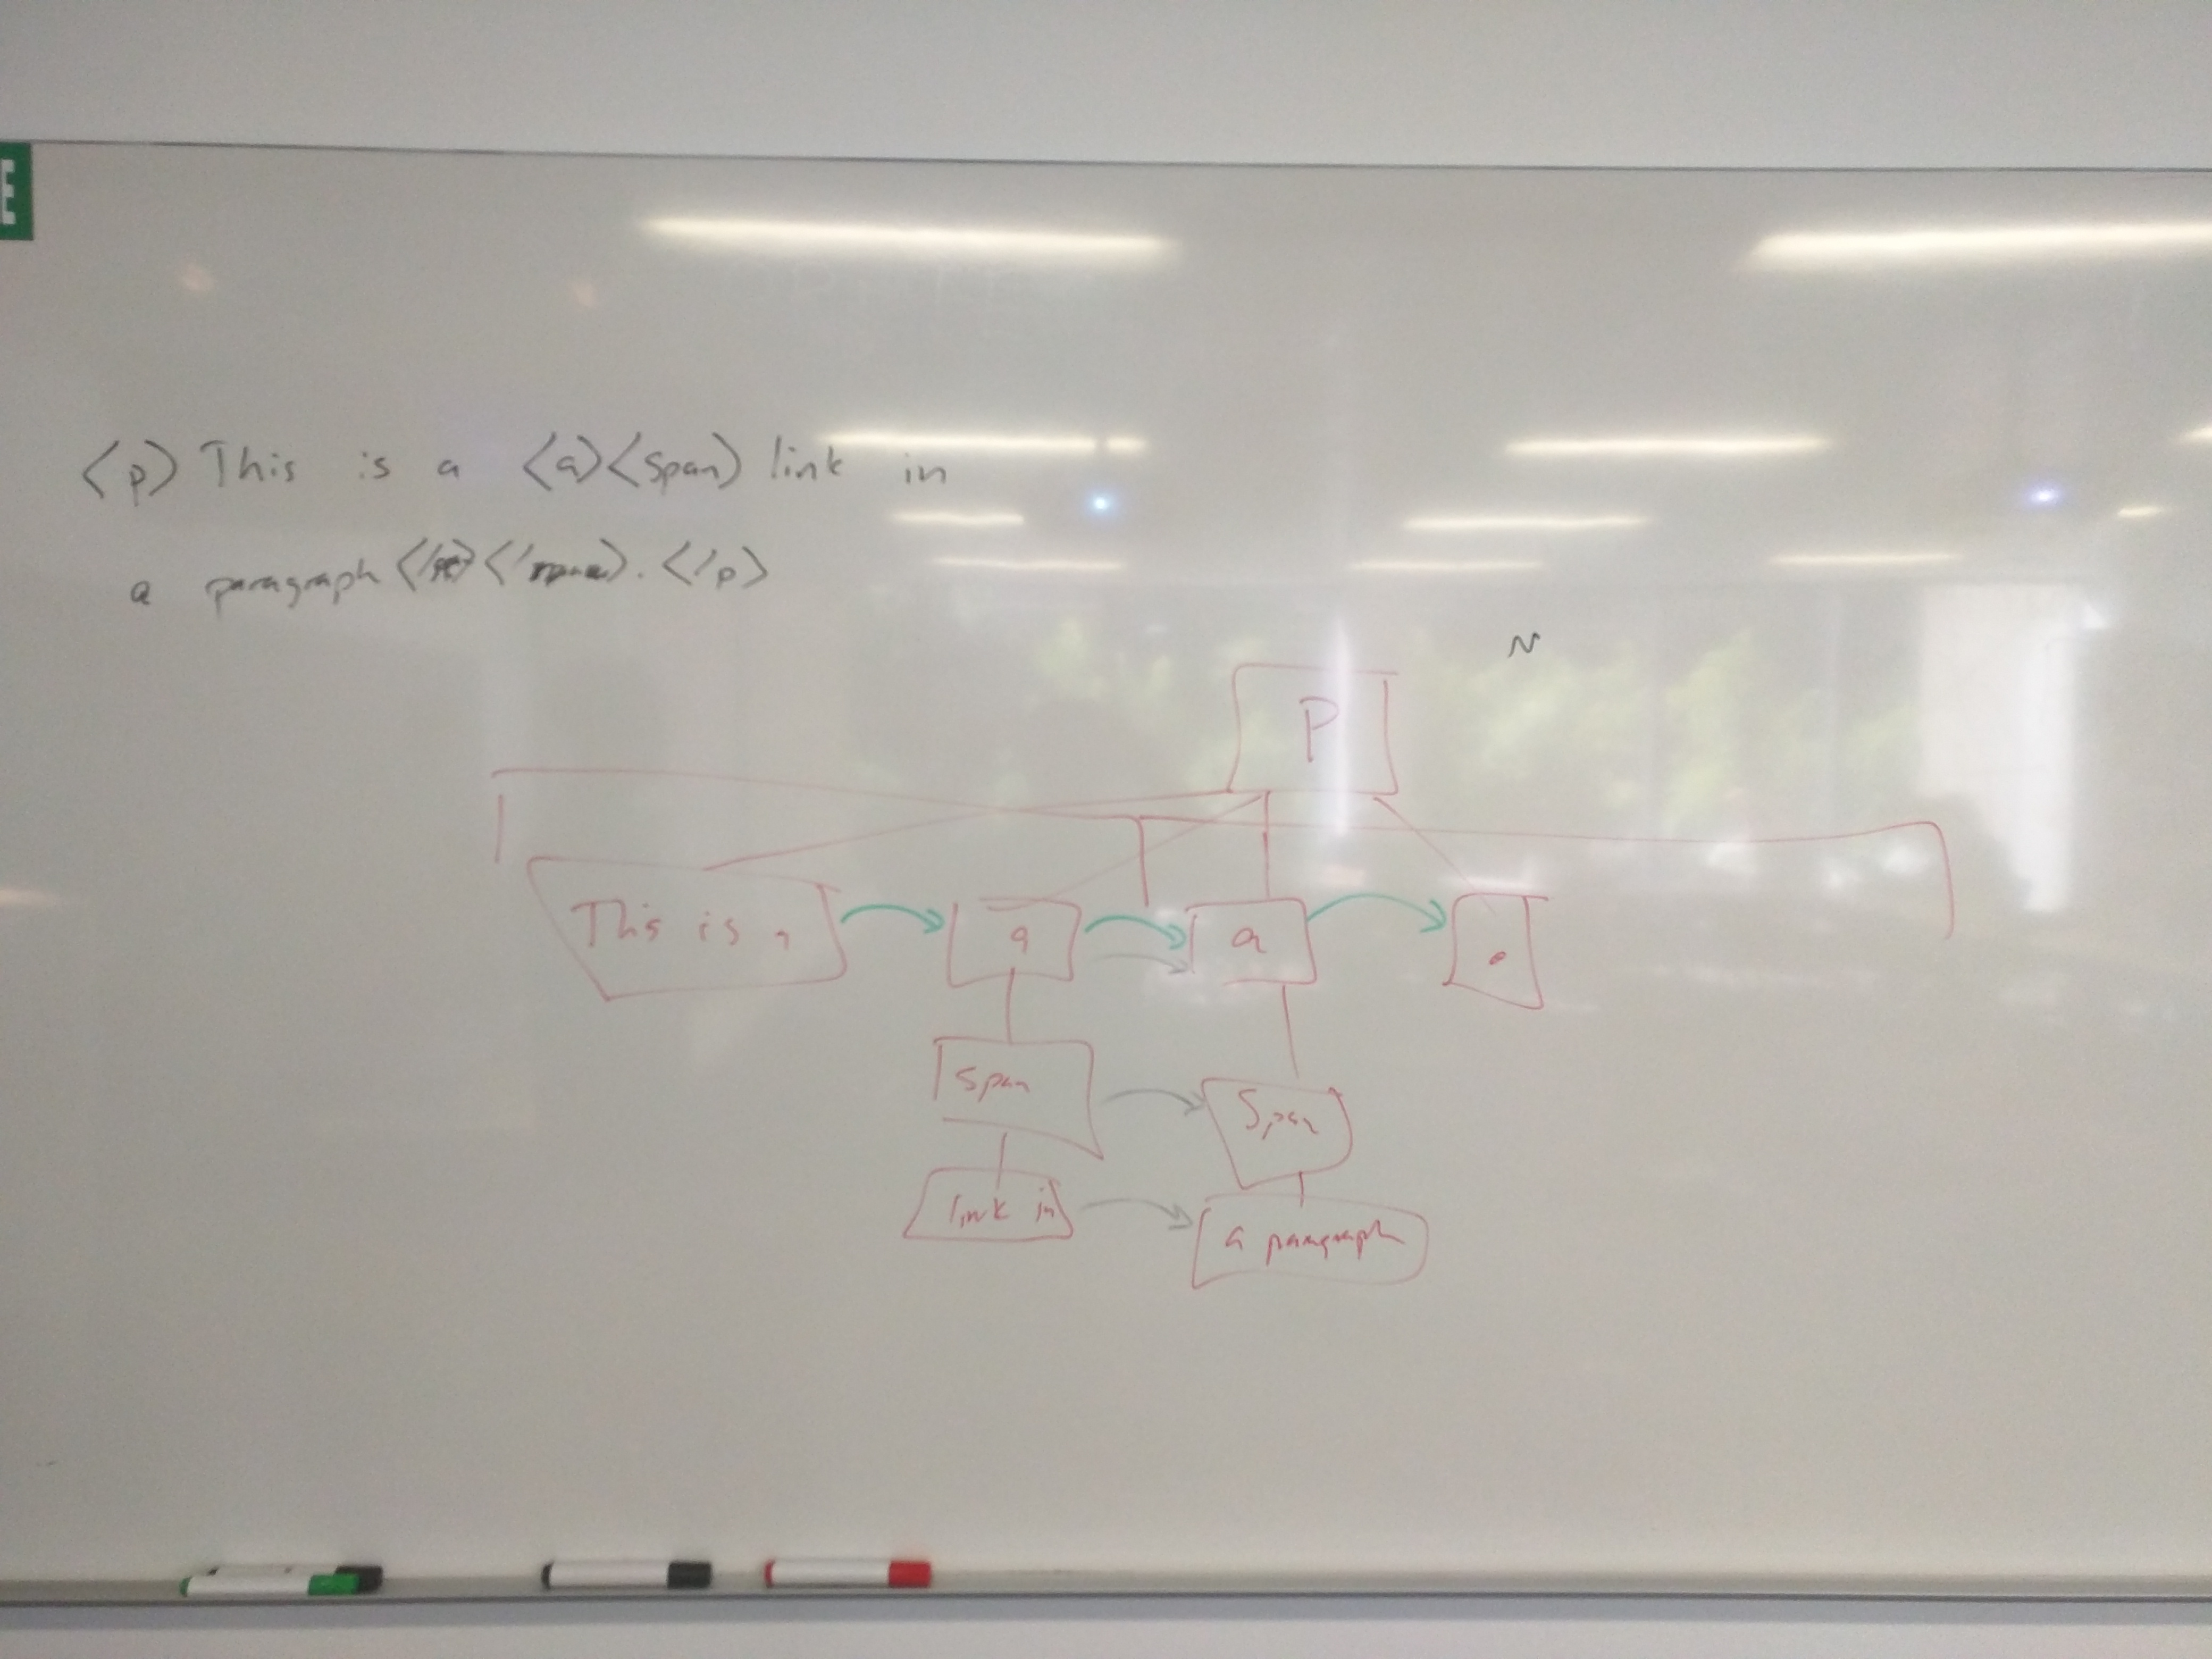 E
<p> This is a <a><span> link in
a paragraph . </p>
N
P
This is a
a
a
.
span
Span
link in
a paragraph